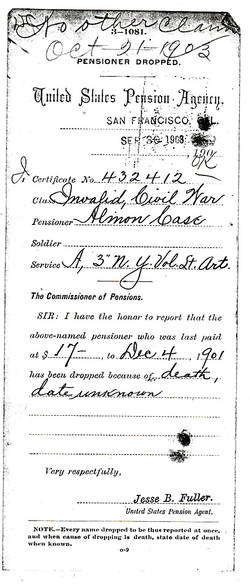 No other claim
Oct-21-1903
3-1081.
PENSIONER DROPPED.
United States Pension Agency,
SAN FRANCISCO, CAL.
SEP 30 1903
Certificate No. 432412
Class Invalid, Civil War
Pensioner Almon Case
Soldier
Service A, 3" N.Y. Vol. Lt. Art.
The Commissioner of Pensions.
SIR: I have the honor to report that the
above-named pensioner who was last paid
at $ 17-, to Dec 4, 1901
has been dropped because of death,
date unknown
Very respectfully,
Jesse B. Fuller.
United States Pension Agent.
NOTE.—Every name dropped to be thus reported at once,
and when cause of dropping is death, state date of death
when known.